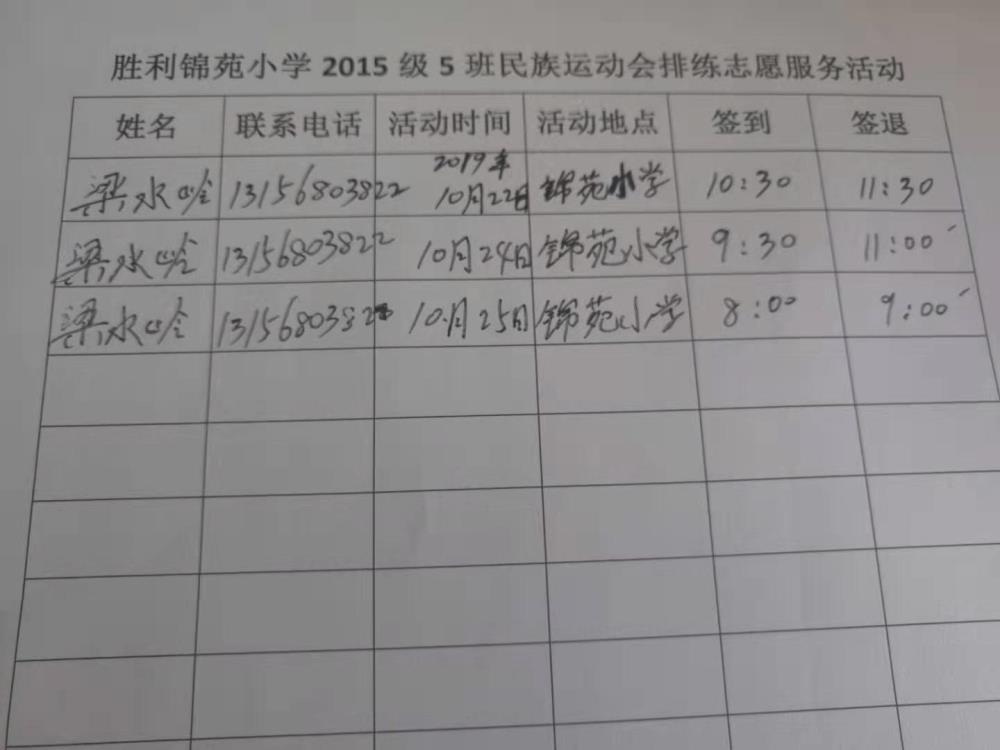 胜利锦苑小学 2015 级 5 班民族运动会排练志愿服务活动
姓名 联系电话 活动时间 活动地点 签到 签退
梁水吟 13156803822 2019年10月22日 锦苑小学 10:30 11:30
梁水吟 13156803822 10月24日 锦苑小学 9:30 11:00
梁水吟 13156803822 10月25日 锦苑小学 8:00 9:00